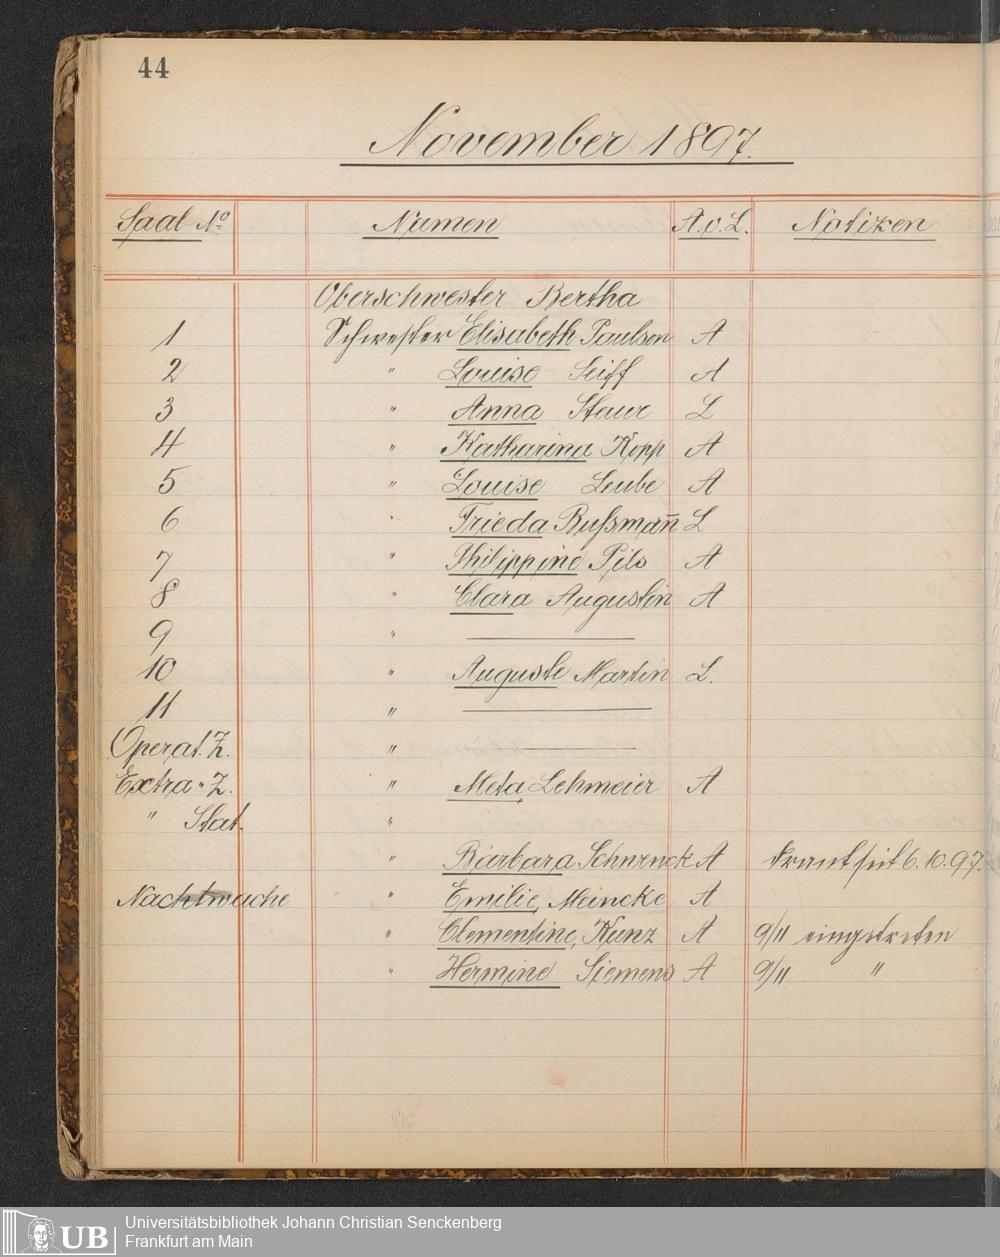 44
November 1897.
Saal No Namen A.o.L. Notizen
Oberschwester Bertha
1 Schwester Elisabeth Paulson A
2 " Louise Seiff A
3 " Anna Staur L
4 " Katharina Kopp A
5 " Louise Leube A
6 " Frieda Bußman̄ L
7 " Philippine Pils A
8 " Clara Augustin A
9 " —
10 " Auguste Martin L.
11 " —
Operat. Z. " —
Extra " Z. " Meta Lehmeier A
" Stat. "
" Barbara Schnenck A krank seit 6.10.97.
Nachtwache " Emilie Meincke A
" Clementine Kunz A 9/11 eingetreten
" Hermine Siemens A 9/11 "
Universitätsbibliothek Johann Christian Senckenberg
UB Frankfurt am Main